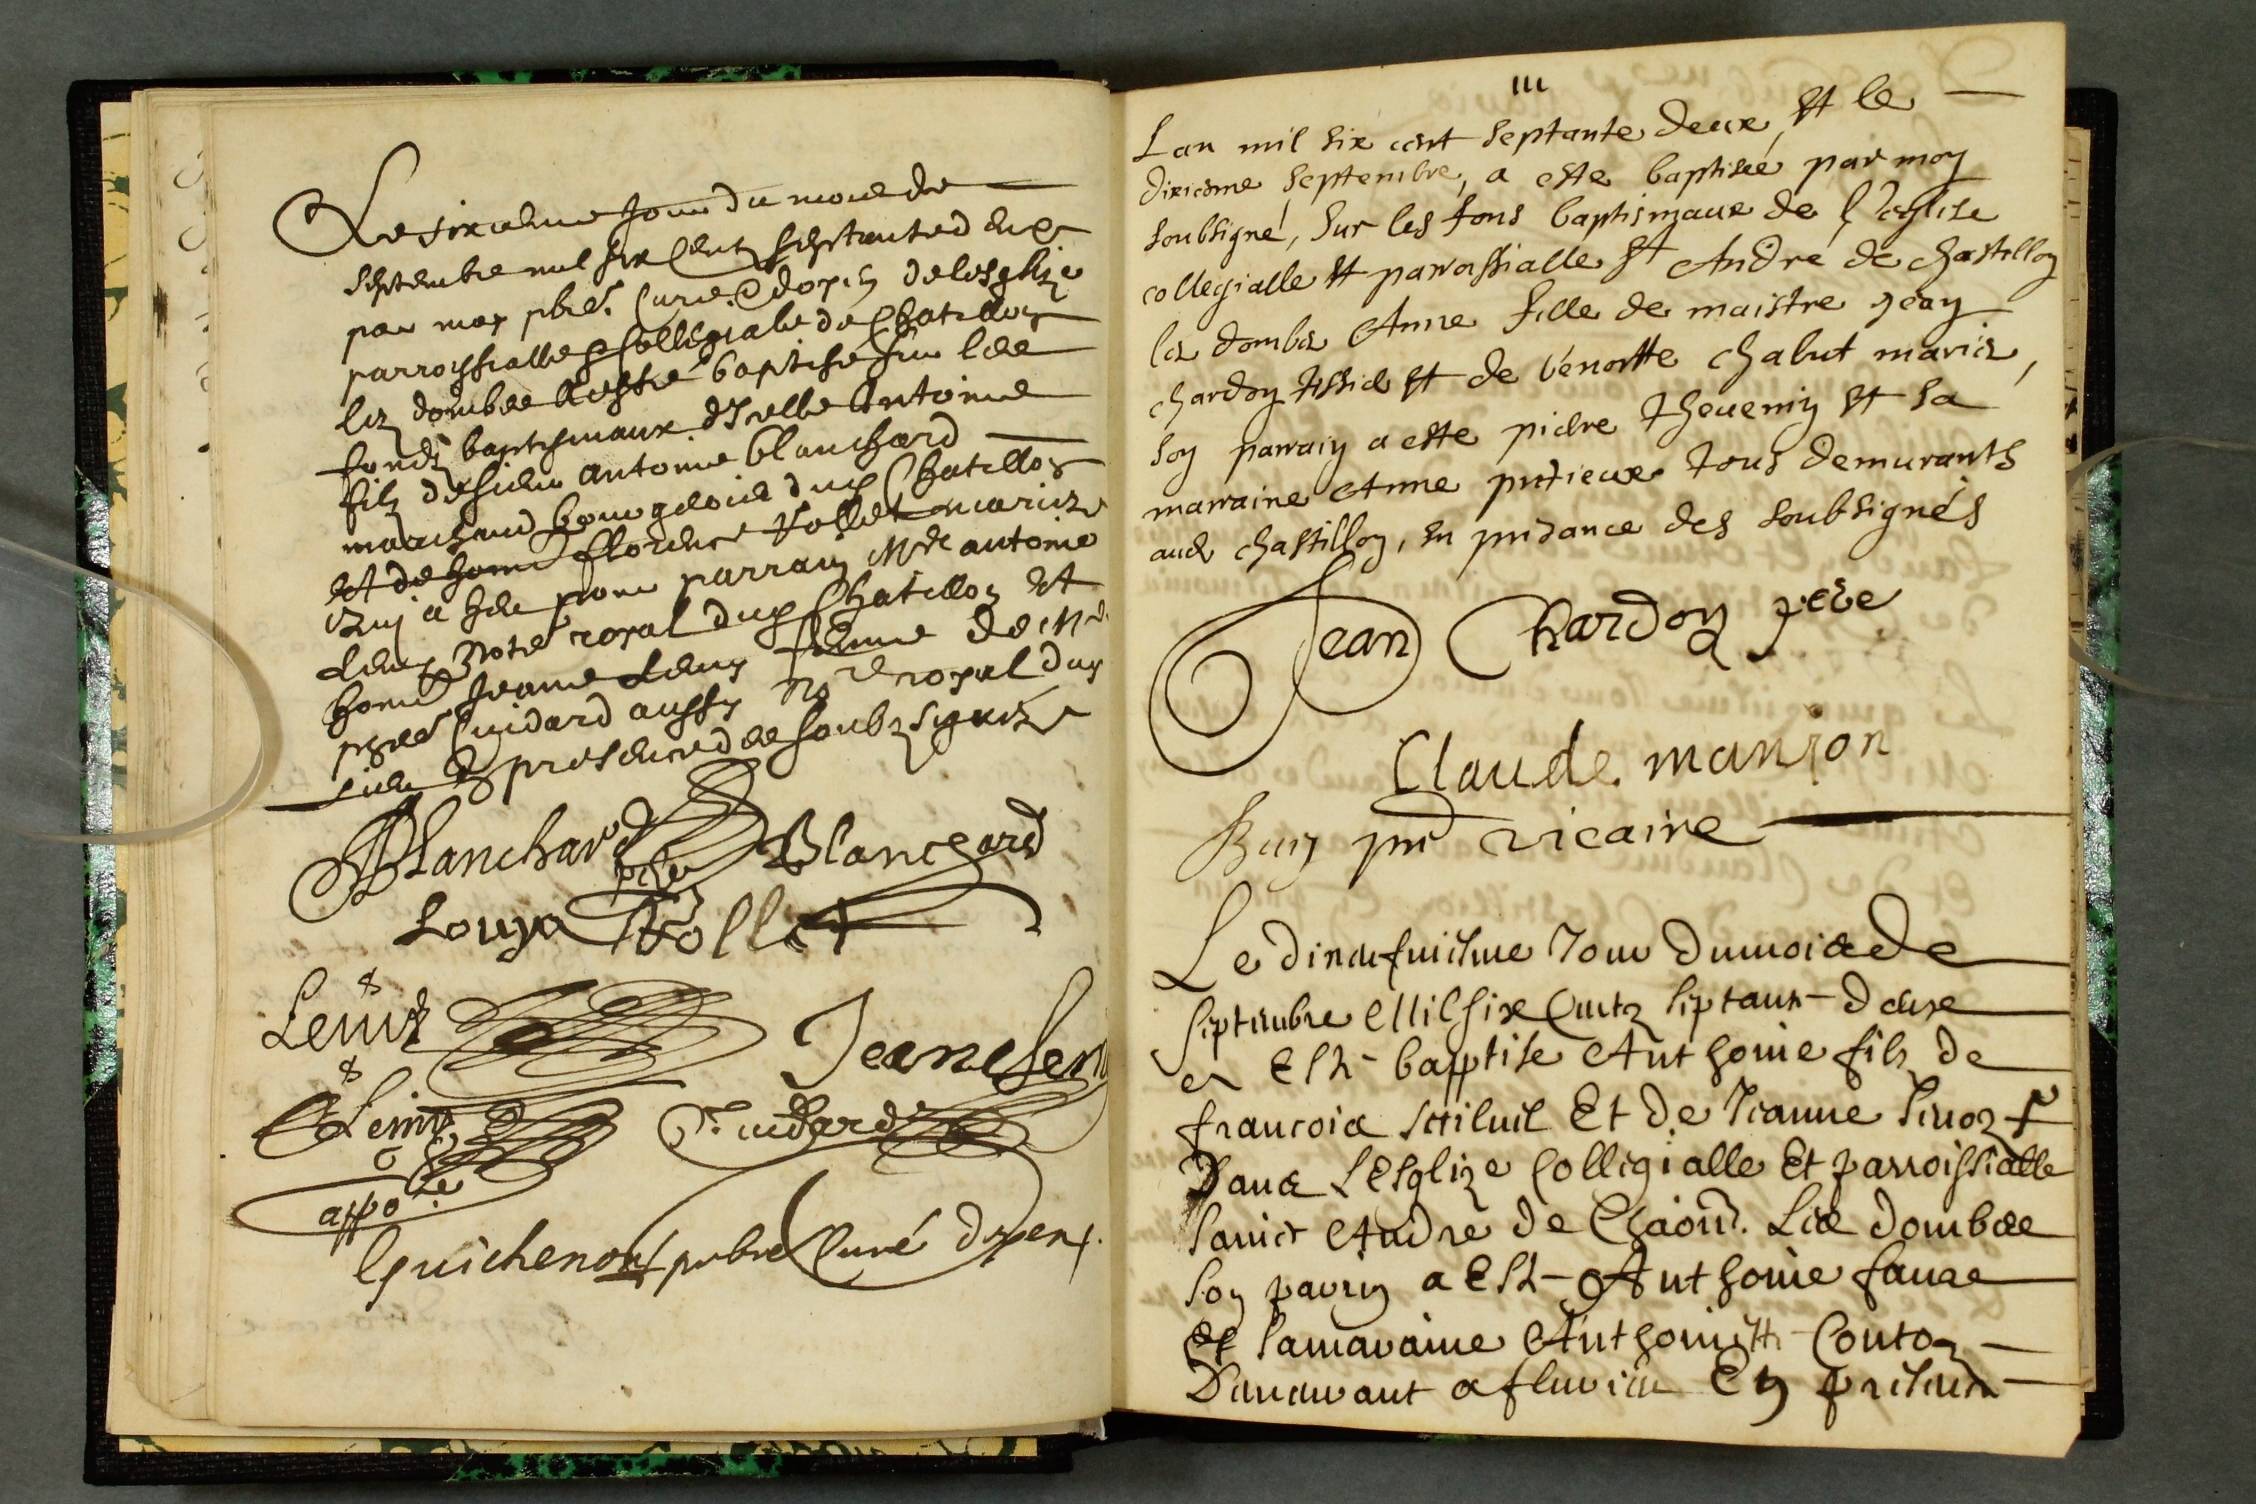 Le sixiesme jour du mois de
septembre mil six centz septante deux
par moy pbre. Curé & doyen de lesglize
parroissialle & Collegiale de Chatillon
lez dombes a esté baptisé sur les
fondz baptismaux d'Icelle Antoine
filz de sieur antoine blanchard
marchand bourgeois dud Chatillon
et de hono. florence rollet mariez
Quj a heu pour parrain Mre antoine
Note. royal dud Chatillon et
hono. Jeanne femme de Mre
Cuidard aussy no.re royal dud
lieu En presence des soubz signez
Blanchard Blanchard
Rollet
Jeane
Cuidard
Guichenon pnbre Curé doyen.
III
Lan mil six cent septante deux, et le
dixiesme septembre, a este baptisée par moy
soubsigné, sur les fons baptismaux de l'esglise
collegialle et parroissialle st André de chastillon
les dombes Anne fille de maistre jean
chardon tissier et de benoitte chalut mariés,
son parrain a este pierre thevenin et sa
marraine Anne tous demurants
aud chastillon, en presance des soubsignés
Jean Chardon pere
Claude manion
Buy pre vicaire
Le dineufuiesme Jour du mois de
septembre Mil six Centz septante deux
a Esté baptise Anthoine filz de
francois Et de Jeanne
Dans LEsglize Collegialle Et parroissialle
sainct André de Chaon. Les dombes
son parrin a Esté Anthoine faure
Et sa maraine Anthoinette Conton
Demeurant a fluvieu En presence